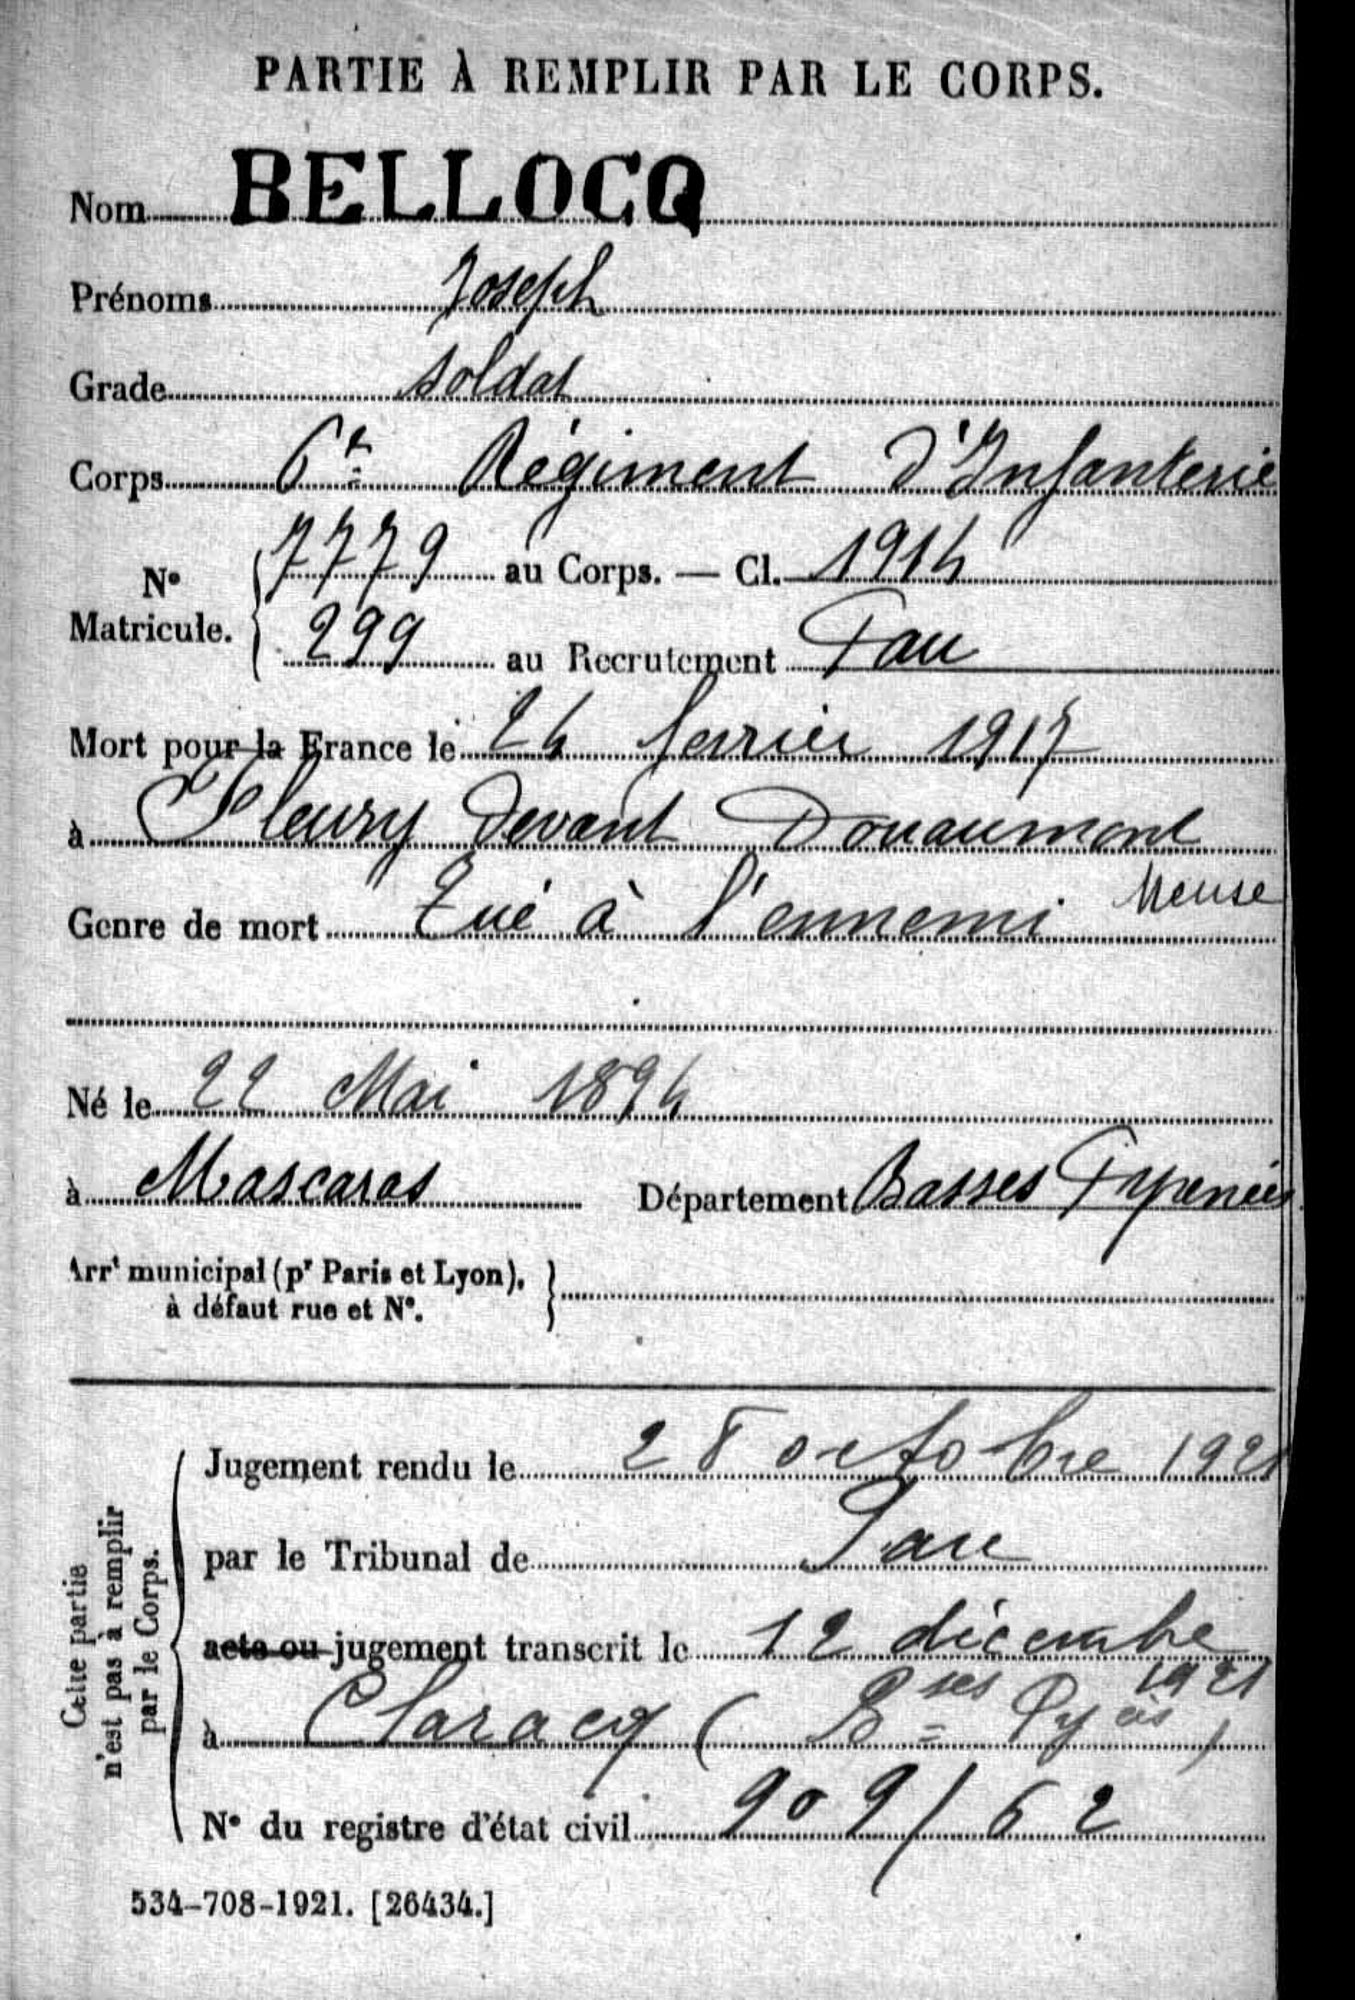 PARTIE À REMPLIR PAR LE CORPS.
Nom BELLOCQ
Prénoms Joseph
Grade soldat
Corps 6e Régiment d'Infanterie
N° Matricule. 7779 au Corps. — Cl. 1914
299 au Recrutement Pau
Mort pour la France le 24 fevrier 1917
à Fleury devant Douaumont
Meuse
Genre de mort Tué à l'ennemi
Né le 22 Mai 1894
à Mascaras Département Basses Pyrenées
Arrt municipal (pr Paris et Lyon),
à défaut rue et N°.
Cette partie
n'est pas à remplir
par le Corps.
Jugement rendu le 28 octobre 1921
par le Tribunal de Pau
acte ou jugement transcrit le 12 décembre
1921
à Claracq (Bses Pyées)
N° du registre d'état civil 909/62
534-708-1921. [26434.]